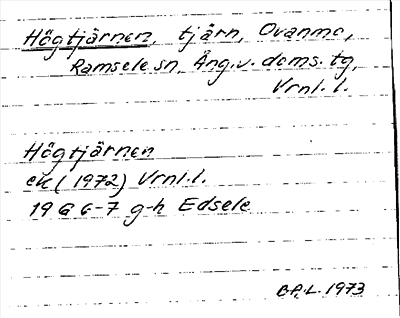 Högtjärnen, tjärn, Ovanmo,
Ramsele sn, Ång.v. doms. tg,
Vrnl. l.
Högtjärnen
ek (1972) Vrnl. l.
19 G 6-7 g-h Edsele
B.P.L. 1973